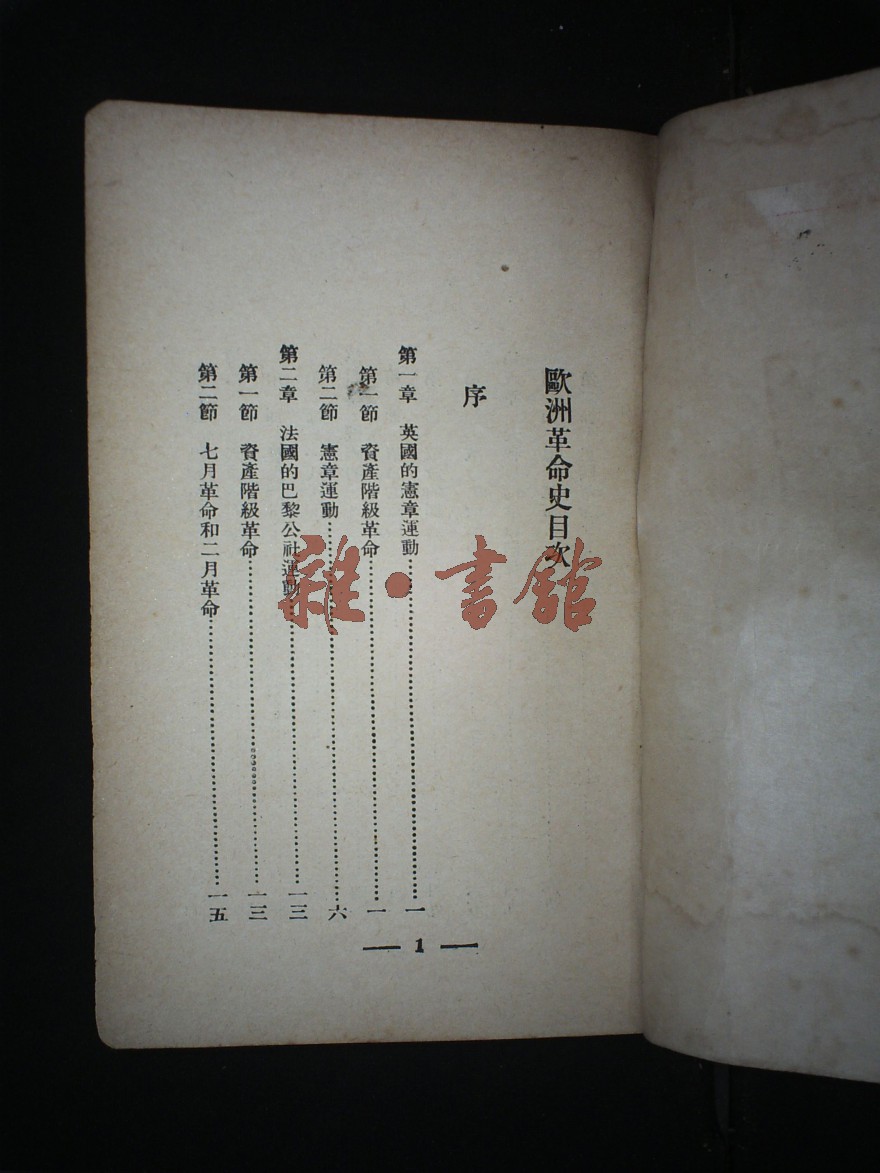 歐洲革命史目次
序
第一章 英國的憲章運動……一
第一節 資產階級革命……一
第二節 憲章運動……六
第二章 法國的巴黎公社運動……一三
第一節 資產階級革命……一三
第二節 七月革命和二月革命……一五
— 1 —
雜·書館